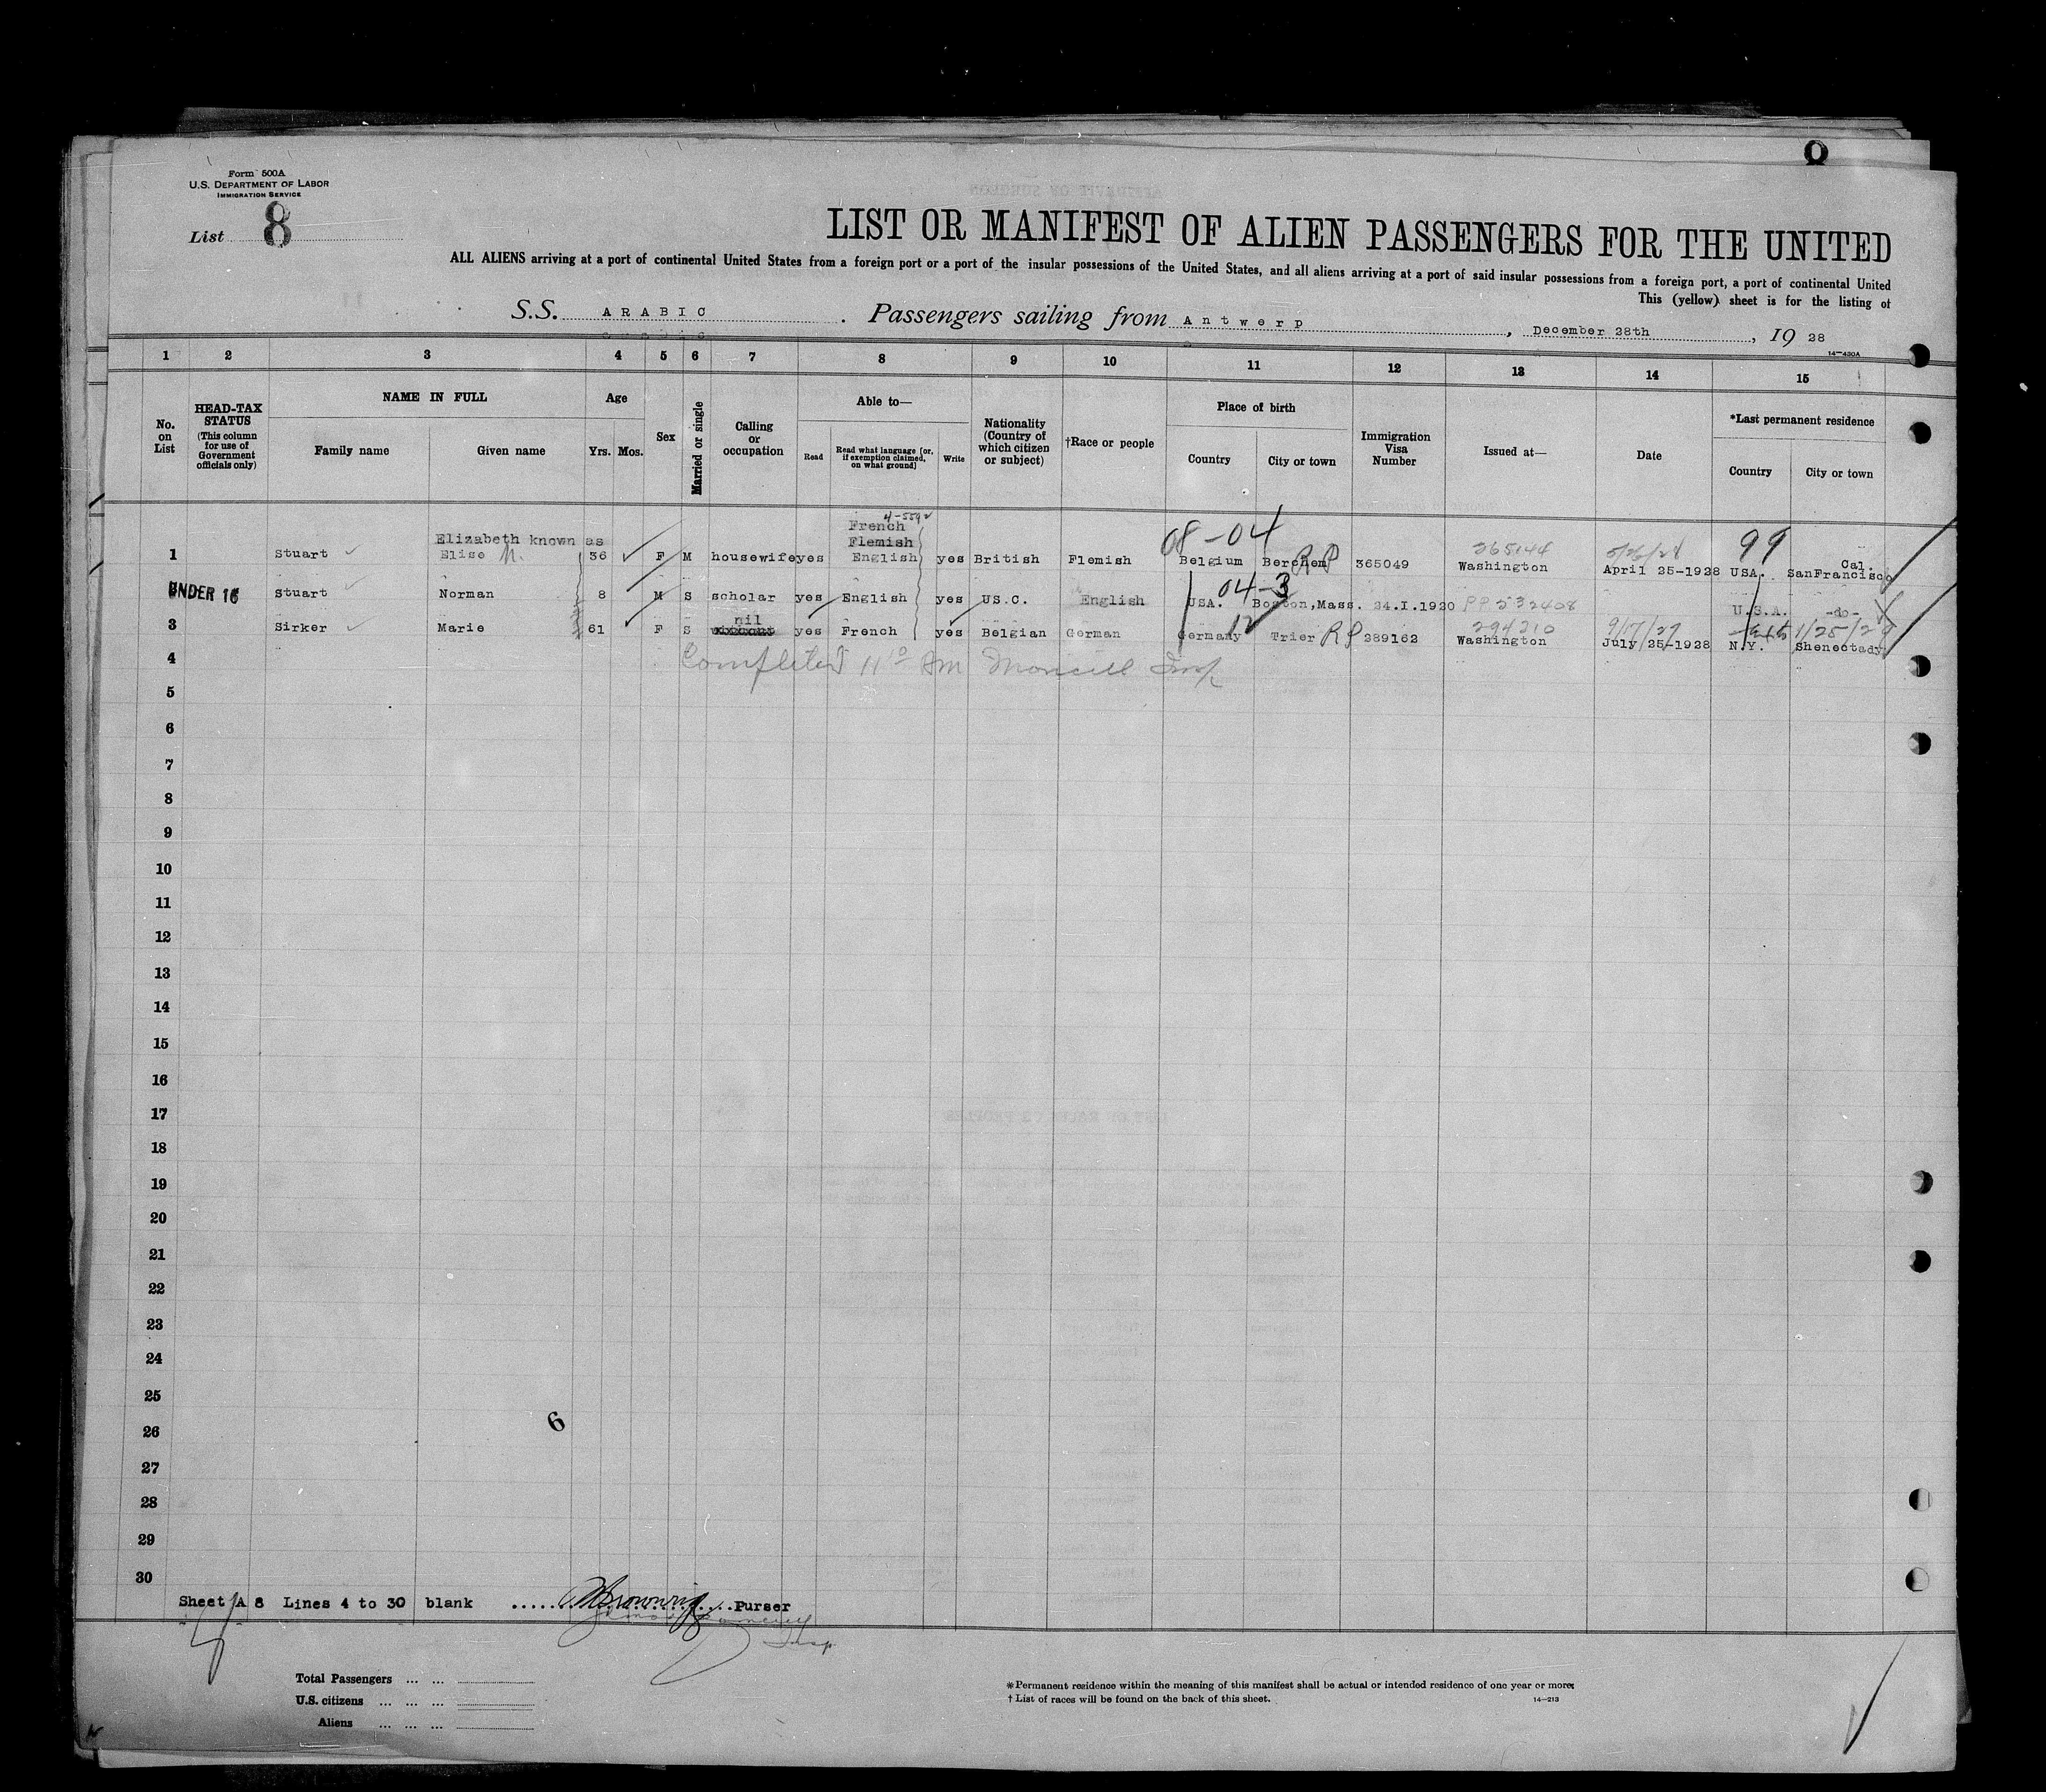 Form 500A
U.S. DEPARTMENT OF LABOR
IMMIGRATION SERVICE
List 8
LIST OR MANIFEST OF ALIEN PASSENGERS FOR THE UNITED
ALL ALIENS arriving at a port of continental United States from a foreign port or a port of the insular possessions of the United States, and all aliens arriving at a port of said insular possessions from a foreign port, a port of continental United
This (yellow) sheet is for the listing of
S.S. ARABIC. Passengers sailing from Antwerp, December 28th, 19 28
14-430A
1 2 3 4 5 6 7 8 9 10 11 12 13 14 15
No. on List
HEAD-TAX STATUS (This column for use of Government officials only)
NAME IN FULL
Family name Given name
Age
Yrs. Mos.
Sex
Married or single
Calling or occupation
Able to—
Read Read what language [or, if exemption claimed, on what ground] Write
Nationality (Country of which citizen or subject)
†Race or people
Place of birth
Country City or town
Immigration Visa Number
Issued at—
Date
*Last permanent residence
Country City or town
4-559
French
Elizabeth known as Flemish 08-04 365144 99 Cal.
1 Stuart Elise N. 36 F M housewife yes English yes British Flemish Belgium Berchem RP 365049 Washington April 25-1928 USA. SanFrancisco
04-3
UNDER 16 Stuart Norman 8 M S scholar yes English yes US.C. English USA. Boston,Mass. 24.I.1920 PP 532408 U.S.A. -do-
nil 12 294210 9/17/29 1/25/29
3 Sirker Marie 61 F S yes French yes Belgian German Germany Trier RP 289162 Washington July 25-1928 N.Y. Shenectady
4 Completed 11 AM Insp
5
6
7
8
9
10
11
12
13
14
15
16
17
18
19
20
21
22
23
24
25
6
26
27
28
29
30
Sheet A 8 Lines 4 to 30 blank Browning Purser
Insp
Total Passengers ... ...
U.S. citizens ... ... ...
Aliens ... ... ...
*Permanent residence within the meaning of this manifest shall be actual or intended residence of one year or more.
† List of races will be found on the back of this sheet. 14-213